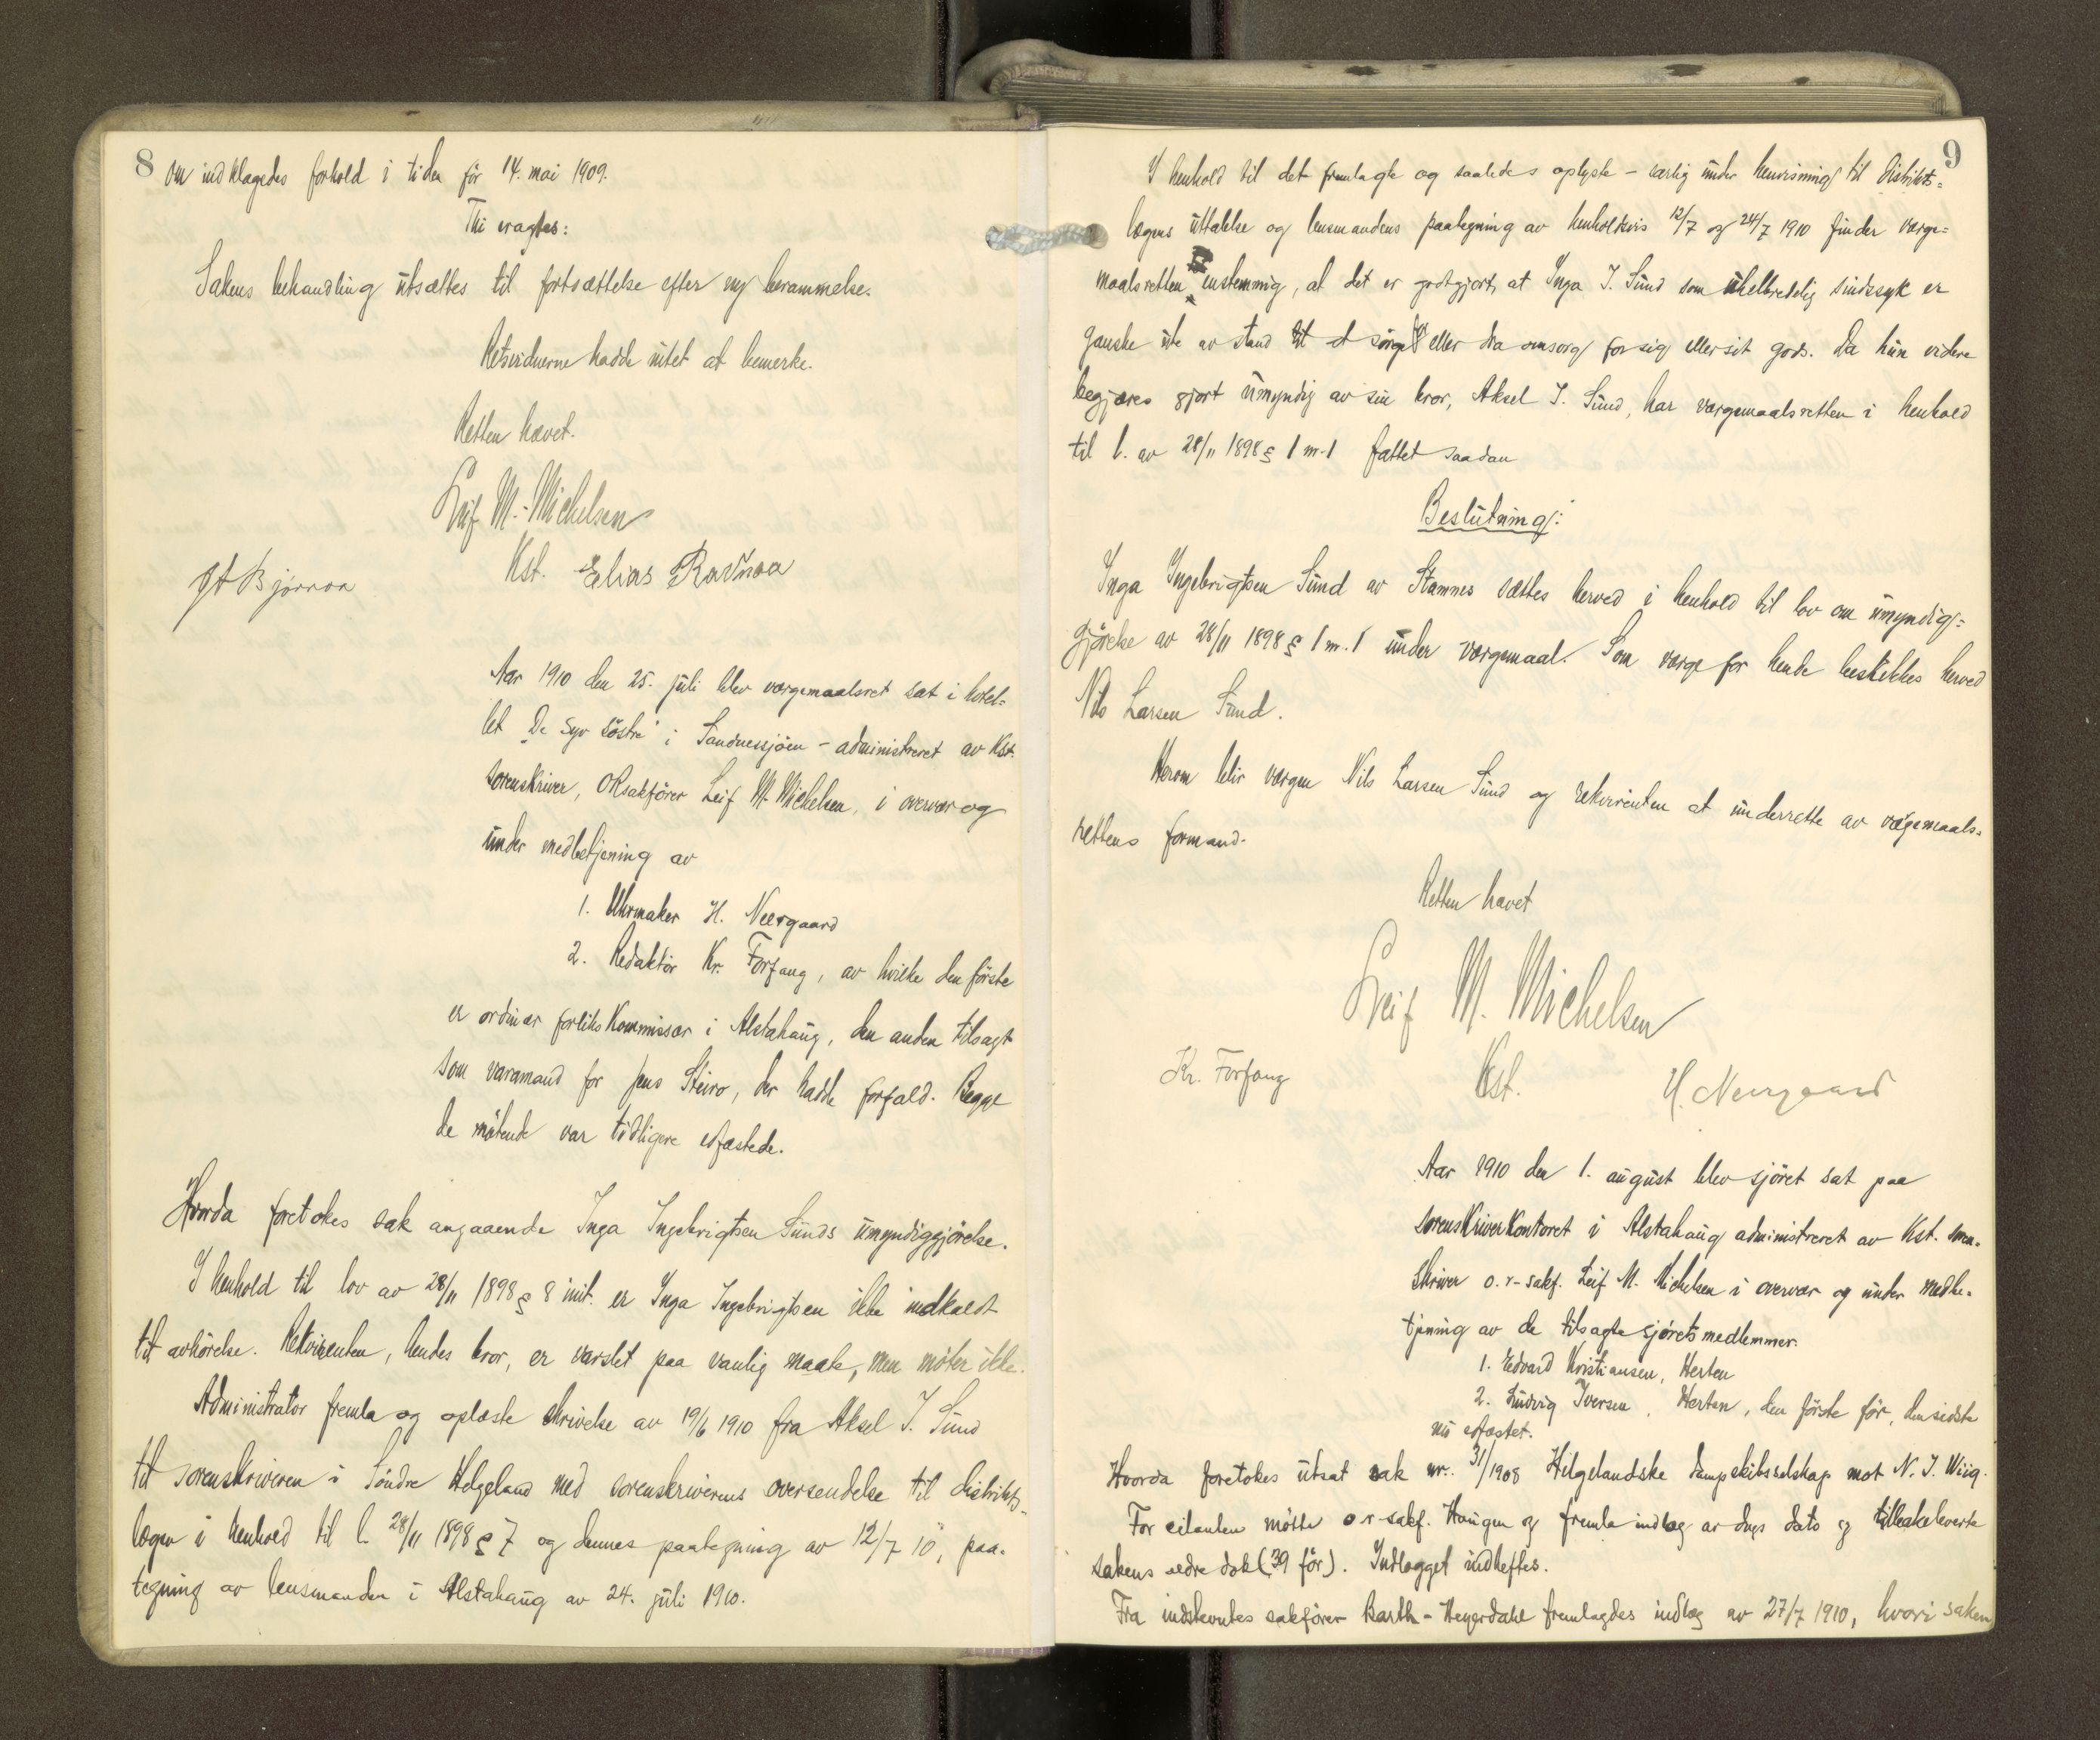 8
om indklagedes forhold i tiden för 14. mai 1909.
Thi eragtes:
Sakens behandling utsættes til fortsættelse efter ny berammelse.
Retsvidnerne hadde intet at bemerke.
Retten hævet.
Leif M. Michelsen
Kst. Elias Ravnaa
Aar 1910 den 25. juli blev værgemaalsret sat i hotel-
let "De syv söstre" i Sandnessjöen - administreret av Kst.
sorenskriver, ORsakförer Leif M. Michelsen, i overvær og
under medbetjening av
1. Uhrmaker H. Neergaard
2. Redaktör Kr. Forfang, av hvilke den förste
er ordinær forlikskommissær i Alstahaug, den anden tilsagt
som varamand for Jens Steiro, der hadde forfald. Begge
de mötende var tidligere edfæstede.
Hvorda foretokes sak angaaende Inga Ingebrigtsen Sunds umyndiggjörelse.
I henhold til lov av 28/11 1898 § 8 init. er Inga Ingebrigtsen ikke indkaldt
til avhörelse. Rekvirenten, hendes bror, er varslet paa vanlig maate, men möter ikke.
Administrator fremla og oplæste skrivelse av 19/6 1910 fra Aksel I. Sund
til sorenskriveren i Söndre Helgeland med sorenskriverens oversendelse til distrikts-
lægen i henhold til l. 28/11 1898 § 7 og dennes paategning av 12/7 10, paa-
tegning av lensmanden i Alstahaug av 24. juli 1910.
9
I henhold til det fremlagte og saaledes oplyste - særlig under henvisning til distrikts-
lægens uttalelse og lensmandens paategning av henholdsvis 12/7 og 24/7 1910 finder værge-
maalsretten enstemmig, at det er godtgjort, at Inga I. Sund som uhelbredelig sindssyk er
ganske ute av stand til at sörge for eller dra omsorg for sig eller sit gods. Da hun videre
begjæres gjort umyndig av sin bror, Aksel I. Sund, har værgemaalsretten i henhold
til l. av 28/11 1898 § 1 nr. 1 fattet saadan
Beslutning:
Inga Ingebrigtsen Sund av Stamnes sættes herved i henhold til lov om umyndig-
gjörelse av 28/11 1898 § 1 nr. 1 under værgemaal. Som værge for hende beskikkes herved
Nils Larsen Sund.
Herom blir værgen Nils Larsen Sund og rekvirenten at underrette av værgemaals-
rettens formand.
Retten hævet
Leif M. Michelsen
Kr. Forfang Kst. H. Neergaard
Aar 1910 den 1. august blev sjöret sat paa
sorenskriverkontoret i Alstahaug administreret av Kst. soren-
skriver o.r-sakf. Leif M. Michelsen i overvær og under medbe-
tjening av de tilsagte sjöretsmedlemmer.
1. Edvard Kristiansen, Herten
2. Ludvig Iversen, Herten, den förste för, den sidste
nu edfæstet.
Hvorda foretokes utsat sak nr. 31/1908 Helgelandske dampskibsselskap mot N. J. Wiig.
For citanten mötte o.r-sakf. Haugen og fremla indlæg av dags dato og tilbakeleverte
sakens ældre dok (39 för). Indlægget indheftes.
Fra indstevntes sakförer Barth-Heyerdahl fremlagdes indlæg av 27/7 1910, hvori saken